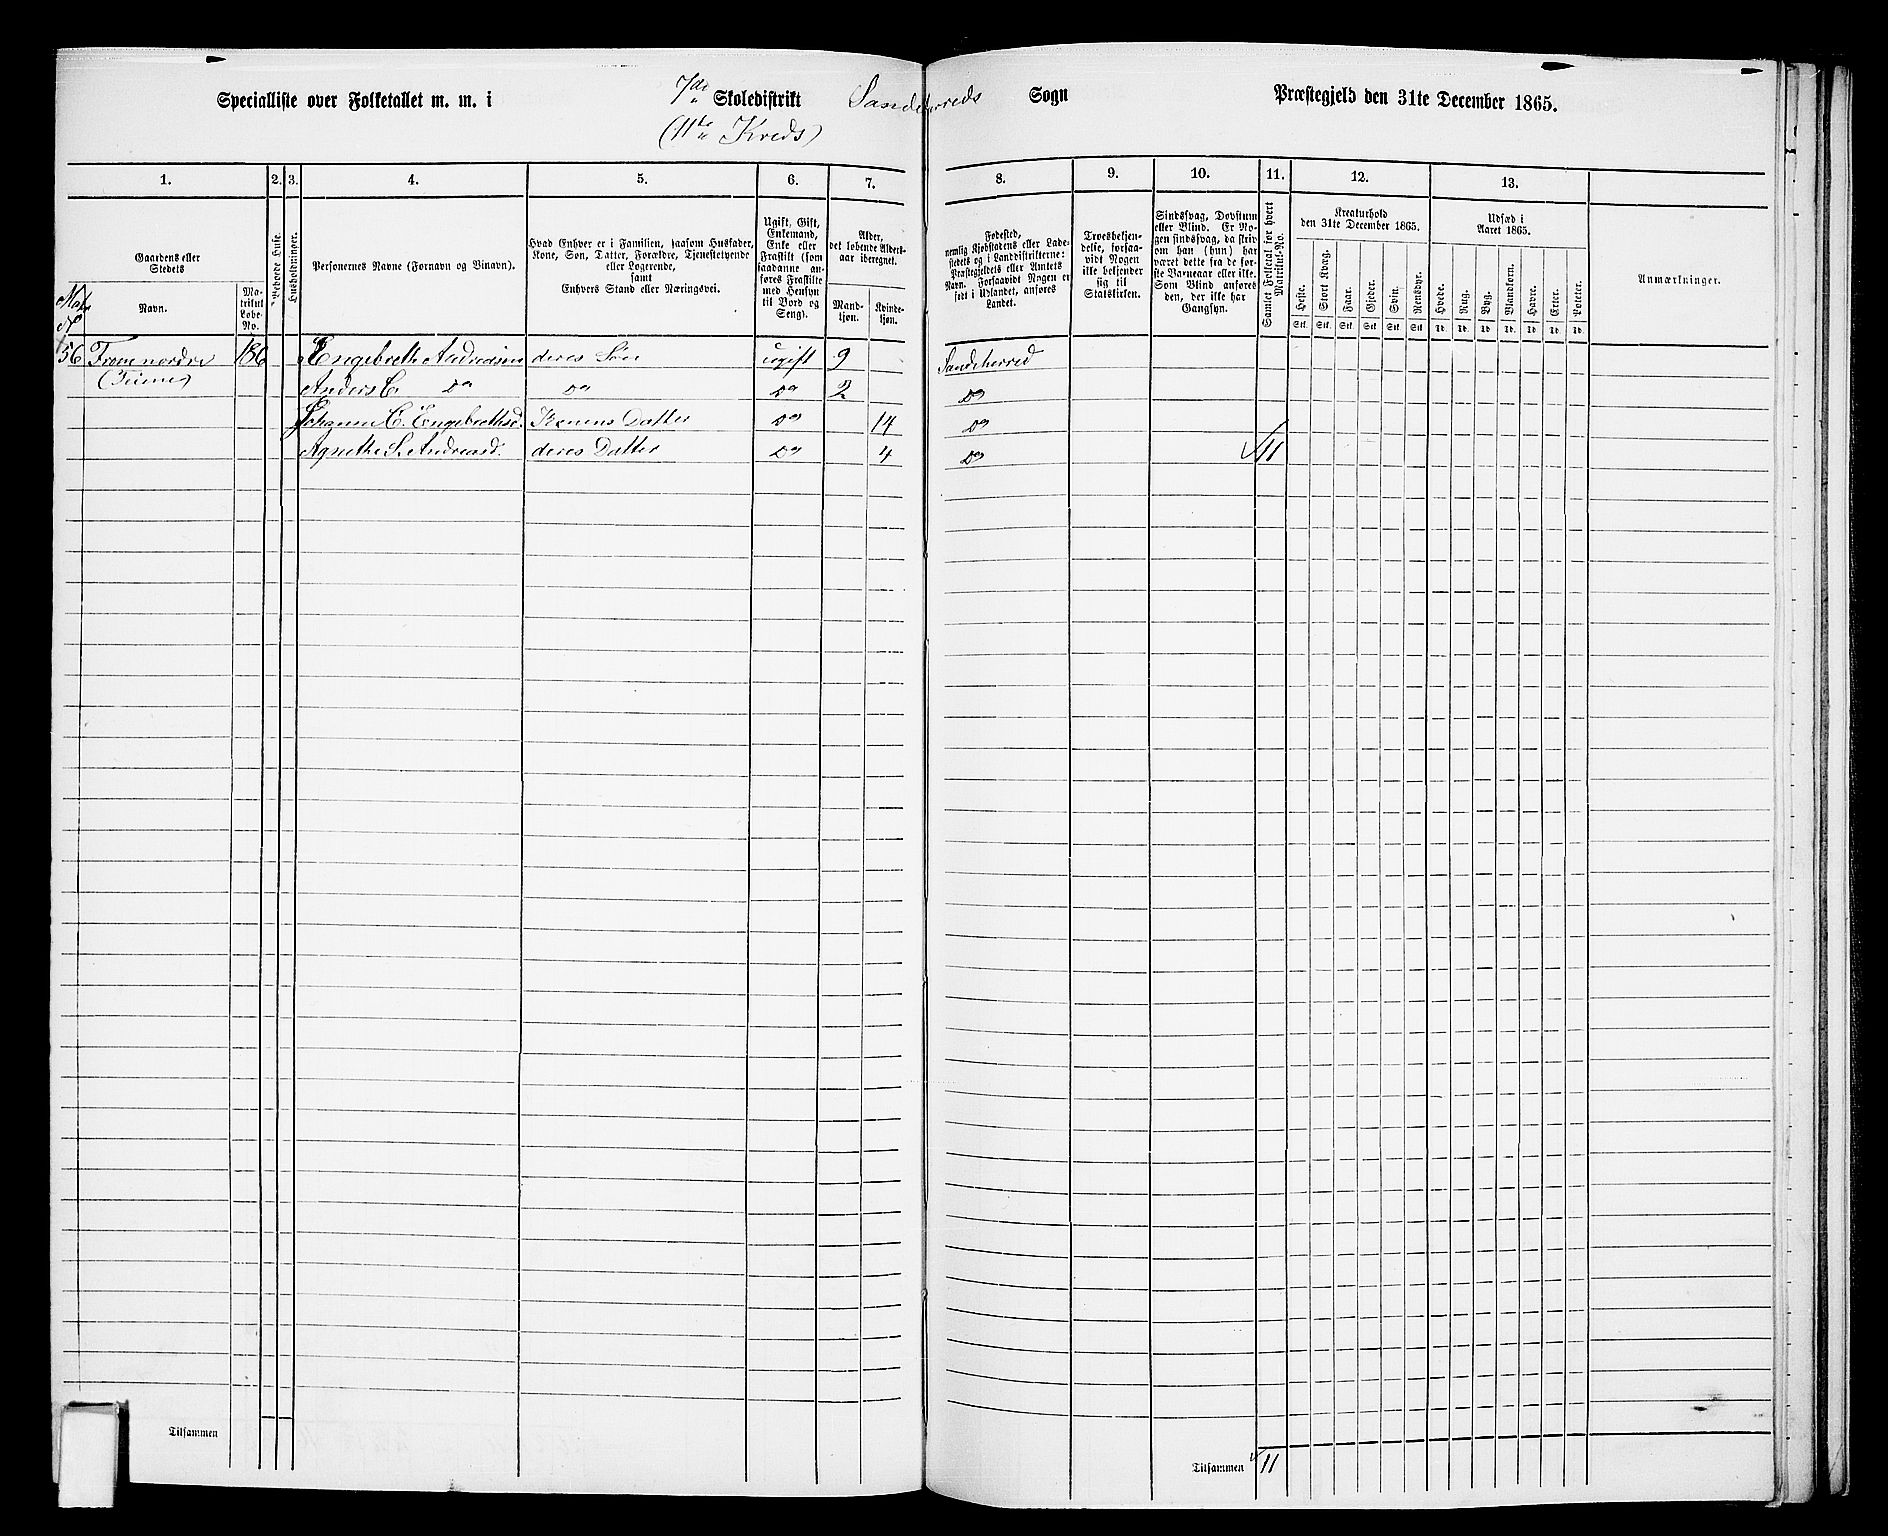 Specialliste over Folketallet m. m. i 7de Skoledistrikt Sandeherreds Sogn Præstegjeld den 31te December 1865.
(11te Kreds)
1. 2. 3. 4. 5. 6. 7. 8. 9. 10. 11. 12. 13.
Gaardens eller Stedets
Navn.
Matrikul Løbe-No.
Beboede Huse.
Husholdninger.
Personernes Navne (Fornavn og Tilnavn).
Hvad Enhver er i Familien, saasom Husfader,
Kone, Søn, Datter, Forældre, Tjenestetyende
eller Logerende,
samt
Enhvers Stand eller Næringsvei.
Ugift, Gift,
Enkemand,
Enke eller
Fraskilt (som
saadanne anføres
Fraskilte
med Hensyn
til Bord og
Seng).
Alder,
det løbende Alders-
aar iberegnet.
Mand-
kjøn.
Kvinde-
kjøn.
Fødested,
nemlig Kjøbstadens eller Lade-
stedets og i Landdistrikterne:
Præstegjeldets eller Amtets
Navn. Forsaavidt Nogen er
født i Udlandet, anføres
Landet.
Troesbekjen-
delse, forsaa-
vidt Nogen
ikke bekjender
sig til
Statskirken.
Sindssvag, Døvstum
eller Blind. Er No-
gen sindssvag, da skriv
om han (hun) har
været dette fra de før-
ste Barneaar eller ikke.
Som Blind anføres
den, der ikke har
Gangsyn.
Samlet Folketal for hvert Matrikul-No.
Kreaturhold
den 31te December 1865.
Heste. Stort Kvæg. Faar. Gjeder. Svin. Rensdyr.
Stk. Stk. Stk. Stk. Stk. Stk.
Udsæd i
Aaret 1865.
Hvede. Rug. Byg. Blandkorn. Havre. Erter. Poteter.
Td. Td. Td. Td. Td. Td. Td.
Anmærkninger.
56 nordre 186 Engebreth Andreasen deres Søn ugift 9 Sandeherred
Anders C. Do Do Do 2 Do
C. Engebrethsd. Konens Datter Do 14 Do
Agnethe S. Andreasd. deres Datter Do 4 Do 11
Tilsammen
Tilsammen 11